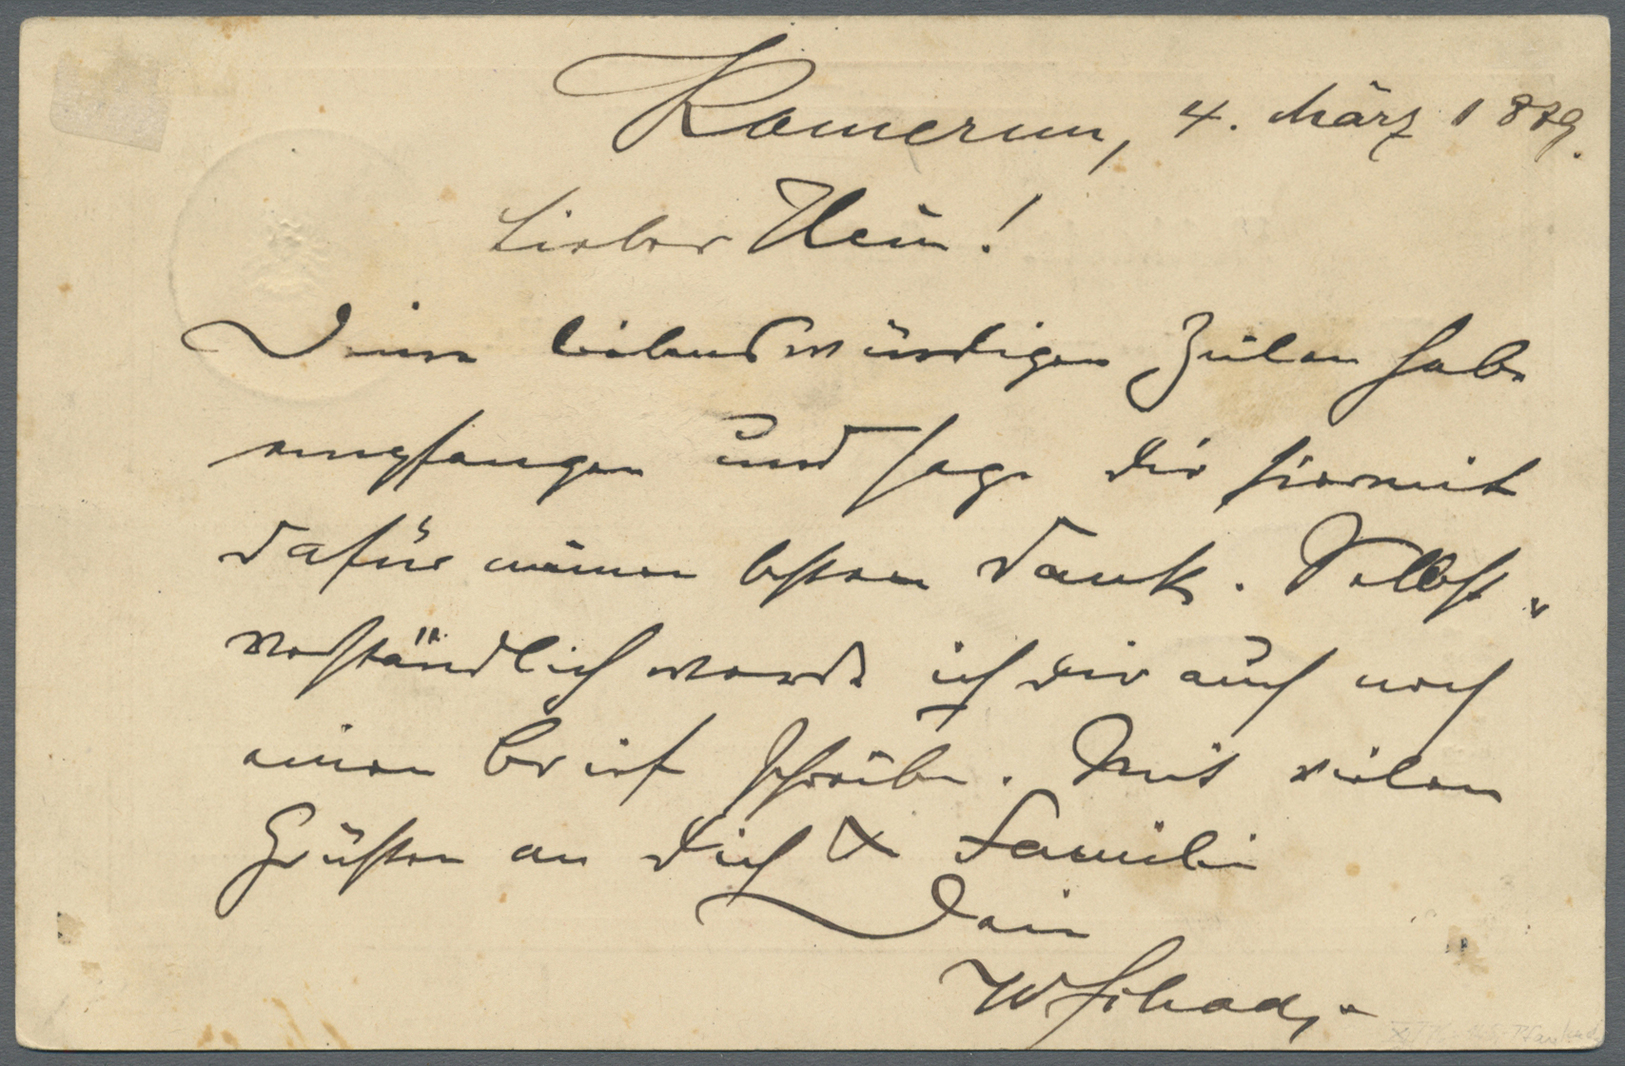 Kamerun, 4. März 1889.
Lieber Hein!
Deine liebenswürdigen Zeilen habe
empfangen und sage Dir hiermit
dafür meinen besten Dank. Selbst„
verständlich werde ich Dir auch noch
einen Brief schreiben. Mit vielen
Grüßen an Dich & Familie
Dein